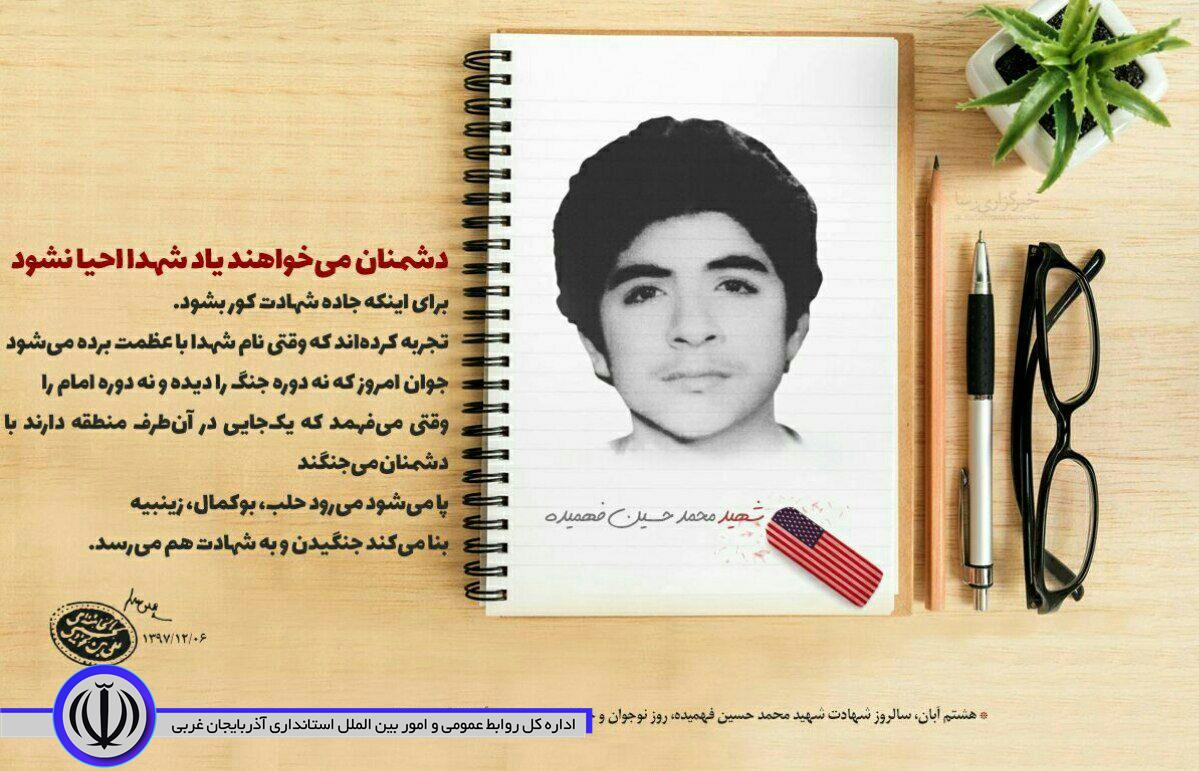 دشمنان می‌خواهند یاد شهدا احیا نشود
برای اینکه جاده شهادت کور بشود.
تجربه کرده‌اند که وقتی نام شهدا با عظمت برده می‌شود
جوان امروز که نه دوره جنگ را دیده و نه دوره امام را
وقتی می‌فهمد که یک‌جایی در آن‌طرف منطقه دارند با
دشمنان می‌جنگند
پا می‌شود می‌رود حلب، بوکمال، زینبیه
بنا می‌کند جنگیدن و به شهادت هم می‌رسد.
۱۳۹۷/۱۲/۰۶
شهید محمد حسین فهمیده
خبرگزاری رسا
* هشتم آبان، سالروز شهادت شهید محمد حسین فهمیده، روز نوجوان و
اداره کل روابط عمومی و امور بین الملل استانداری آذربایجان غربی